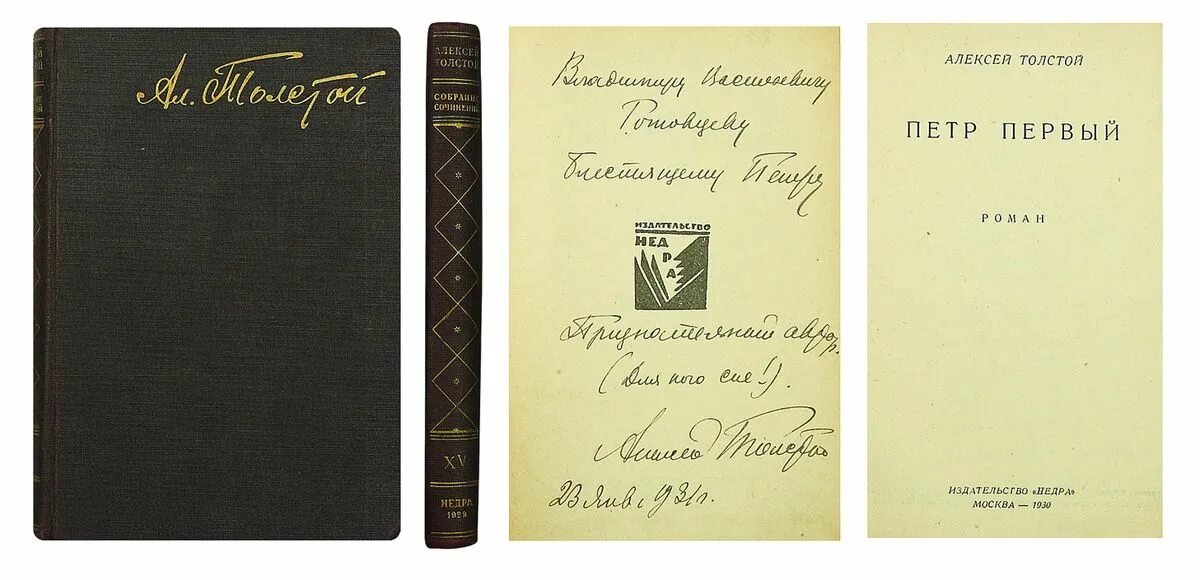 Ал. Толстой
АЛЕКСЕЙ
ТОЛСТОЙ
СОБРАНИЕ
СОЧИНЕНИЙ
XV
НЕДРА
1929
Владимиру Васильевичу
Готовцеву
Блестящему Петру
ИЗДАТЕЛЬСТВО
НЕДРА
Признательный автор.
(для кого сие!).
Алексей Толстой
23 Янв. 1931 г.
АЛЕКСЕЙ ТОЛСТОЙ
ПЕТР ПЕРВЫЙ
РОМАН
ИЗДАТЕЛЬСТВО «НЕДРА»
МОСКВА — 1930